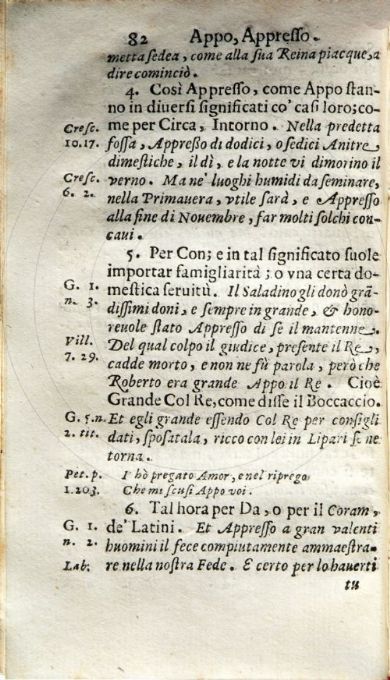 82 Appo, Appresso.
metta sedea, come alla sua Reina piacque, a
dire cominciò.
4. Così Appresso, come Appo stan-
no in diuersi significati co' casi loro; co-
Cresc. me per Circa, Intorno. Nella predetta
10.17. fossa, Appresso di dodici, o sedici Anitre
dimestiche, il dì, e la notte vi dimorino il
Cresc. verno. Ma ne' luoghi humidi da seminare,
6. 2. nella Primauera, vtile sarà, e Appresso
alla fine di Nouembre, far molti solchi con-
caui.
5. Per Con; e in tal significato suole
importar famigliarità; o vna certa do-
G. 1. mestica seruitù. Il Saladino gli donò grã-
n. 3. dissimi doni, e sempre in grande, & hono-
reuole stato Appresso di se il mantenne.
Vill. Del qual colpo il giudice, presente il Re,
7. 29. cadde morto, e non ne fù parola, però che
Roberto era grande Appo il Re. Cioè
Grande Col Re, come disse il Boccaccio.
G. 5.n. Et egli grande essendo Col Re per consigli
2. tit. dati, sposatala, ricco con lei in Lipari se ne
torna.
Pet. p. I' hò pregato Amor, e nel riprego,
1.203. Che mi scusi Appo voi.
6. Tal hora per Da, o per il Coram,
G. 1. de' Latini. Et Appresso a gran valenti
n. 2. huomini il fece compiutamente ammaestra-
Lab. re nella nostra Fede. E certo per lo hauerti
tu